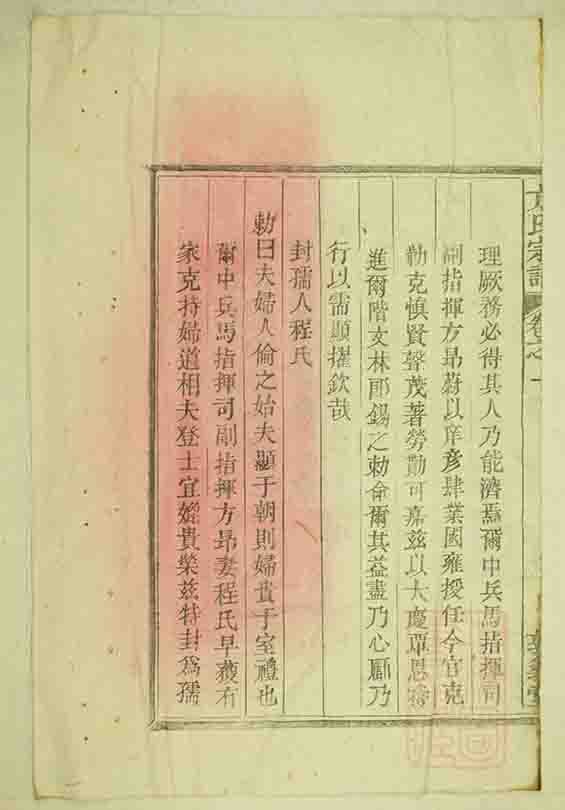 方氏宗譜 卷之一
理厥務必得其人乃能濟焉爾中兵馬指揮司
副指揮方昂蔚以庠彥肆業國雍授任今官克
勑克慎賢聲茂著勞勩可嘉兹以大慶覃恩特
進爾階文林郎錫之勑命爾其益盡乃心勵乃
行以需顯擢欽哉
封孺人程氏
勅曰夫婦人倫之始夫顯于朝則婦貴于室禮也
爾中兵馬指揮司副指揮方昂妻程氏早穫有
家克持婦道相夫登士宜媲貴榮兹特封為孺